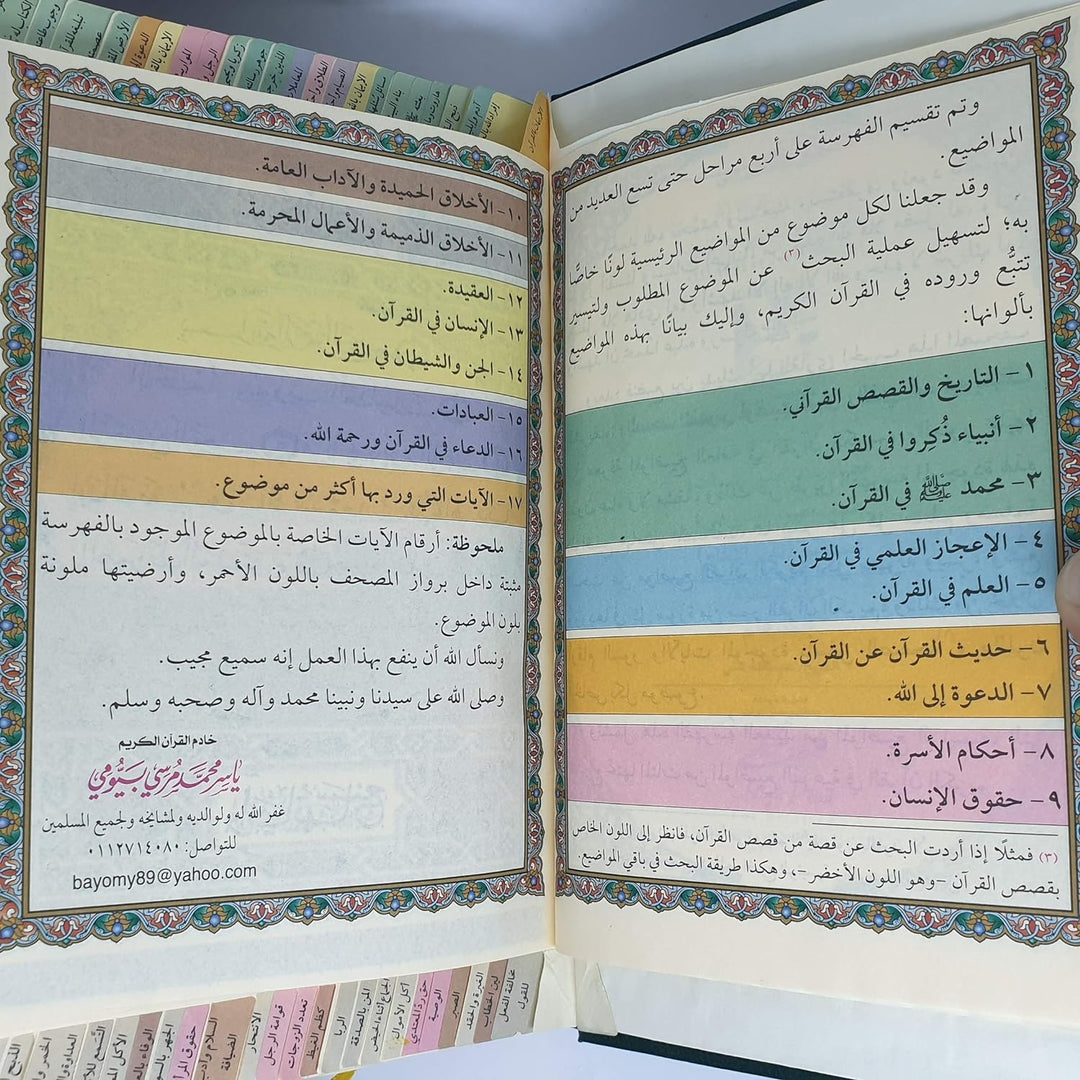 وتم تقسيم الفهرسة على أربع مراحل حتى تسع العديد من
المواضيع.
وقد جعلنا لكل موضوع من المواضيع الرئيسية لونًا خاصًّا
به؛ لتسهيل عملية البحث(٣) عن الموضوع المطلوب ولتيسير
تتبُّع وروده في القرآن الكريم، وإليك بيانًا بهذه المواضيع
بألوانها:
١- التاريخ والقصص القرآني.
٢- أنبياء ذُكِروا في القرآن.
٣- محمد ﷺ في القرآن.
٤- الإعجاز العلمي في القرآن.
٥- العلم في القرآن.
٦- حديث القرآن عن القرآن.
٧- الدعوة إلى الله.
٨- أحكام الأسرة.
٩- حقوق الإنسان.
(٣) فمثلًا إذا أردت البحث عن قصة من قصص القرآن، فانظر إلى اللون الخاص
بقصص القرآن -وهو اللون الأخضر-، وهكذا طريقة البحث في باقي المواضيع.
١٠- الأخلاق الحميدة والآداب العامة.
١١- الأخلاق الذميمة والأعمال المحرمة.
١٢- العقيدة.
١٣- الإنسان في القرآن.
١٤- الجن والشيطان في القرآن.
١٥- العبادات.
١٦- الدعاء في القرآن ورحمة الله.
١٧- الآيات التي ورد بها أكثر من موضوع.
ملحوظة: أرقام الآيات الخاصة بالموضوع الموجود بالفهرسة
مثبتة داخل برواز المصحف باللون الأحمر، وأرضيتها ملونة
بلون الموضوع.
ونسأل الله أن ينفع بهذا العمل إنه سميع مجيب.
وصلى الله على سيدنا ونبينا محمد وآله وصحبه وسلم.
خادم القرآن الكريم
ياسر محمد مرسي بيومي
غفر الله له ولوالديه ولمشايخه ولجميع المسلمين
للتواصل: ٠١١٢٧١٤٠٨٠
bayomy89@yahoo.com
مخالفة الفعل للقول
لين الخطاب
الغيرة والحقد
الصبر
الوصية
أكل الأموال
المن بالصدقة
الربا
كظم الغيظ
تعدد الزوجات
قوامة الرجل
الانتحار
الضيافة